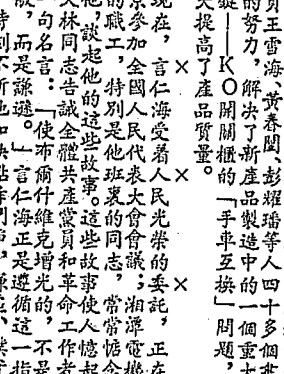 王雪海、黃春闓、彭耀璠等人四十多個
的努力，解决了新產品製造中的一個重大
鍵——KO開關櫃的「手車互換」問題，
大提高了產品質量。
×　×　×
現在，言仁海受着人民光榮的委託，正在
京參加全國人民代表大會會議；湘潭電機
的職工，特別是他班裏的同志，常常惦念
他，談起他的這些故事。這些故事使人憶起
大林同志告誡全體共產黨員和革命工作者
一句名言：「使布爾什維克增光的，不是
，而是謙遜。」言仁海正是遵循這一指